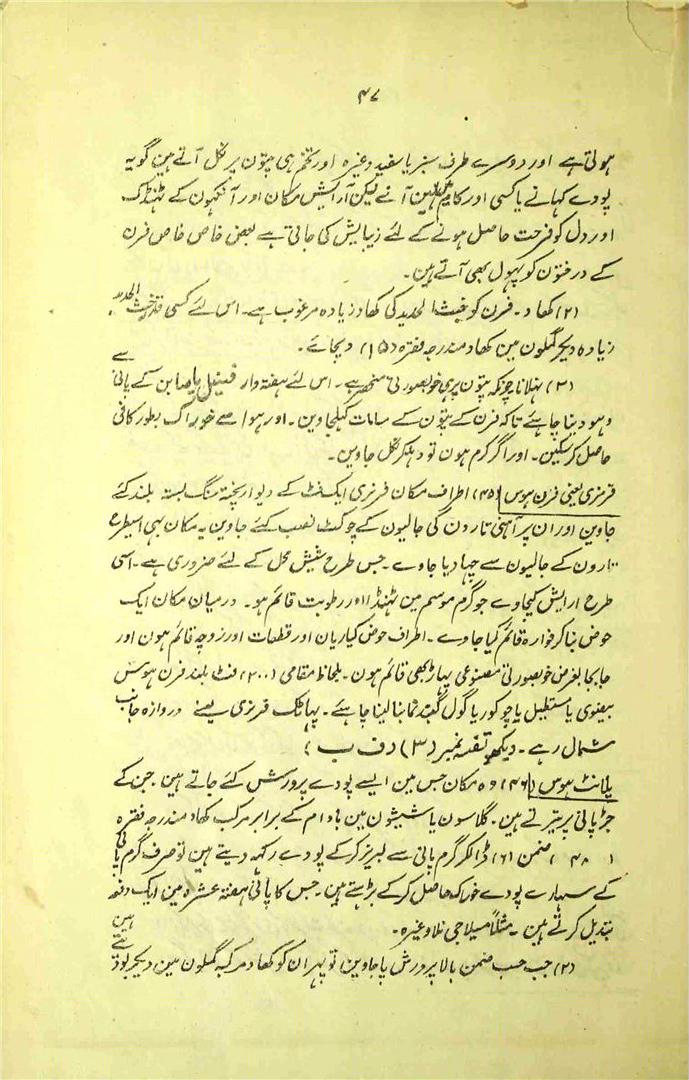 ۴۷
ہوتی ہے اور دوسرے طرف سبز یا سفید وغیرہ اور تخم ہی پتون پر نکل آتے ہین گو یہ
پودے کہانے یا کسی اور کام نہین آتے لیکن آرایش مکان اور آنکھون کے ٹھنڈک
اور دل کو فرحت حاصل ہونے کے لئے زیبایش کی جاتی ہے بعض خاص خاص فرن
کے درختون کو پہول بھی آتے ہین۔
(۲) کھاد۔ فرن کو خبث الحدید کی کھاد زیادہ مرغوب ہے۔ اس لئے کسی قدر خبث الحدید
زیادہ دیجر گملون مین کھاد مندرجہ فقرہ (۱۵) دیجائے۔
(۳) نہلانا چونکہ پتون پر ہی خوبصورتی منحصر ہے۔ اس لئے ہفتہ وار فینیل یا صابن کے پانی سے
دہو دینا چاہئے تاکہ فرن کے پتون کے مسامات کہلجاوین۔ اور ہوا سے خوراک بطور کافی
حاصل کر سکین۔ اور اگر کرم ہون تو دہلکر نکل جاوین۔
فرنری یعنی فرن ہوس (۴۵) اطراف مکان فرنری ایک فٹ کے دیوار پختہ سنگ بستہ بلند کئے
جاوین اور ان پر آہنی تارون کی جالیون کے چوکٹ نصب کئے جاوین یہ مکان بہی اسیطرح
تارون کے جالیون سے چہا دیا جاوے۔ جس طرح شیش محل کے لئے ضروری ہے۔ اسی
طرح ارایش کیجاوے جو گرم موسم مین ٹھنڈا اور رطوبت قائم ہو۔ درمیان مکان ایک
حوض بنا کر فوارہ قائم کیا جاوے۔ اطراف حوض کیاریان اور قطعات اور زوچہ قائم ہون اور
جابجا بغرض خوبصورتی مصنوعی پہاڑ بھی قائم ہون۔ بلحاظ مقامی (۲۰۰) فٹ بلند فرن ہوس
بیضوی یا مستطیل یا چوکور یا گول گنبد نما بنا لینا چاہئے۔ پہاٹک فرنری یعنے دروازہ جانب
شمال رہے۔ دیکھو نقشہ نمبر (۳) دف ب )
پلانٹ ہوس (۴۶) وہ مکان جس مین ایسے پودے پرورش کئے جاتے ہین۔ جن کے
جڑ پانی پر تیرتے ہین۔ گلاسون یا شیشون مین بادام کے برابر مرکب کھاد مندرجہ فقرہ
( ۴۸ ) ضمن (۶) ڈالکر گرم پانی سے لبریز کر کے پودے رکہہ دیتے ہین تو صرف گرم پانی
کے سہارے پودے خوراک حاصل کر کے بڑہتے ہین۔ جس کا پانی ہفتہ عشرہ مین ایک دفعہ
تبدیل کرتے ہین۔ مثلاً میلاجی نلا وغیرہ۔
(۲) جب حسب ضمن بالا پرورش پا جاوین تو پہر ان کو کھاد مرکبہ گملون مین دیجر بو دیتے ہین